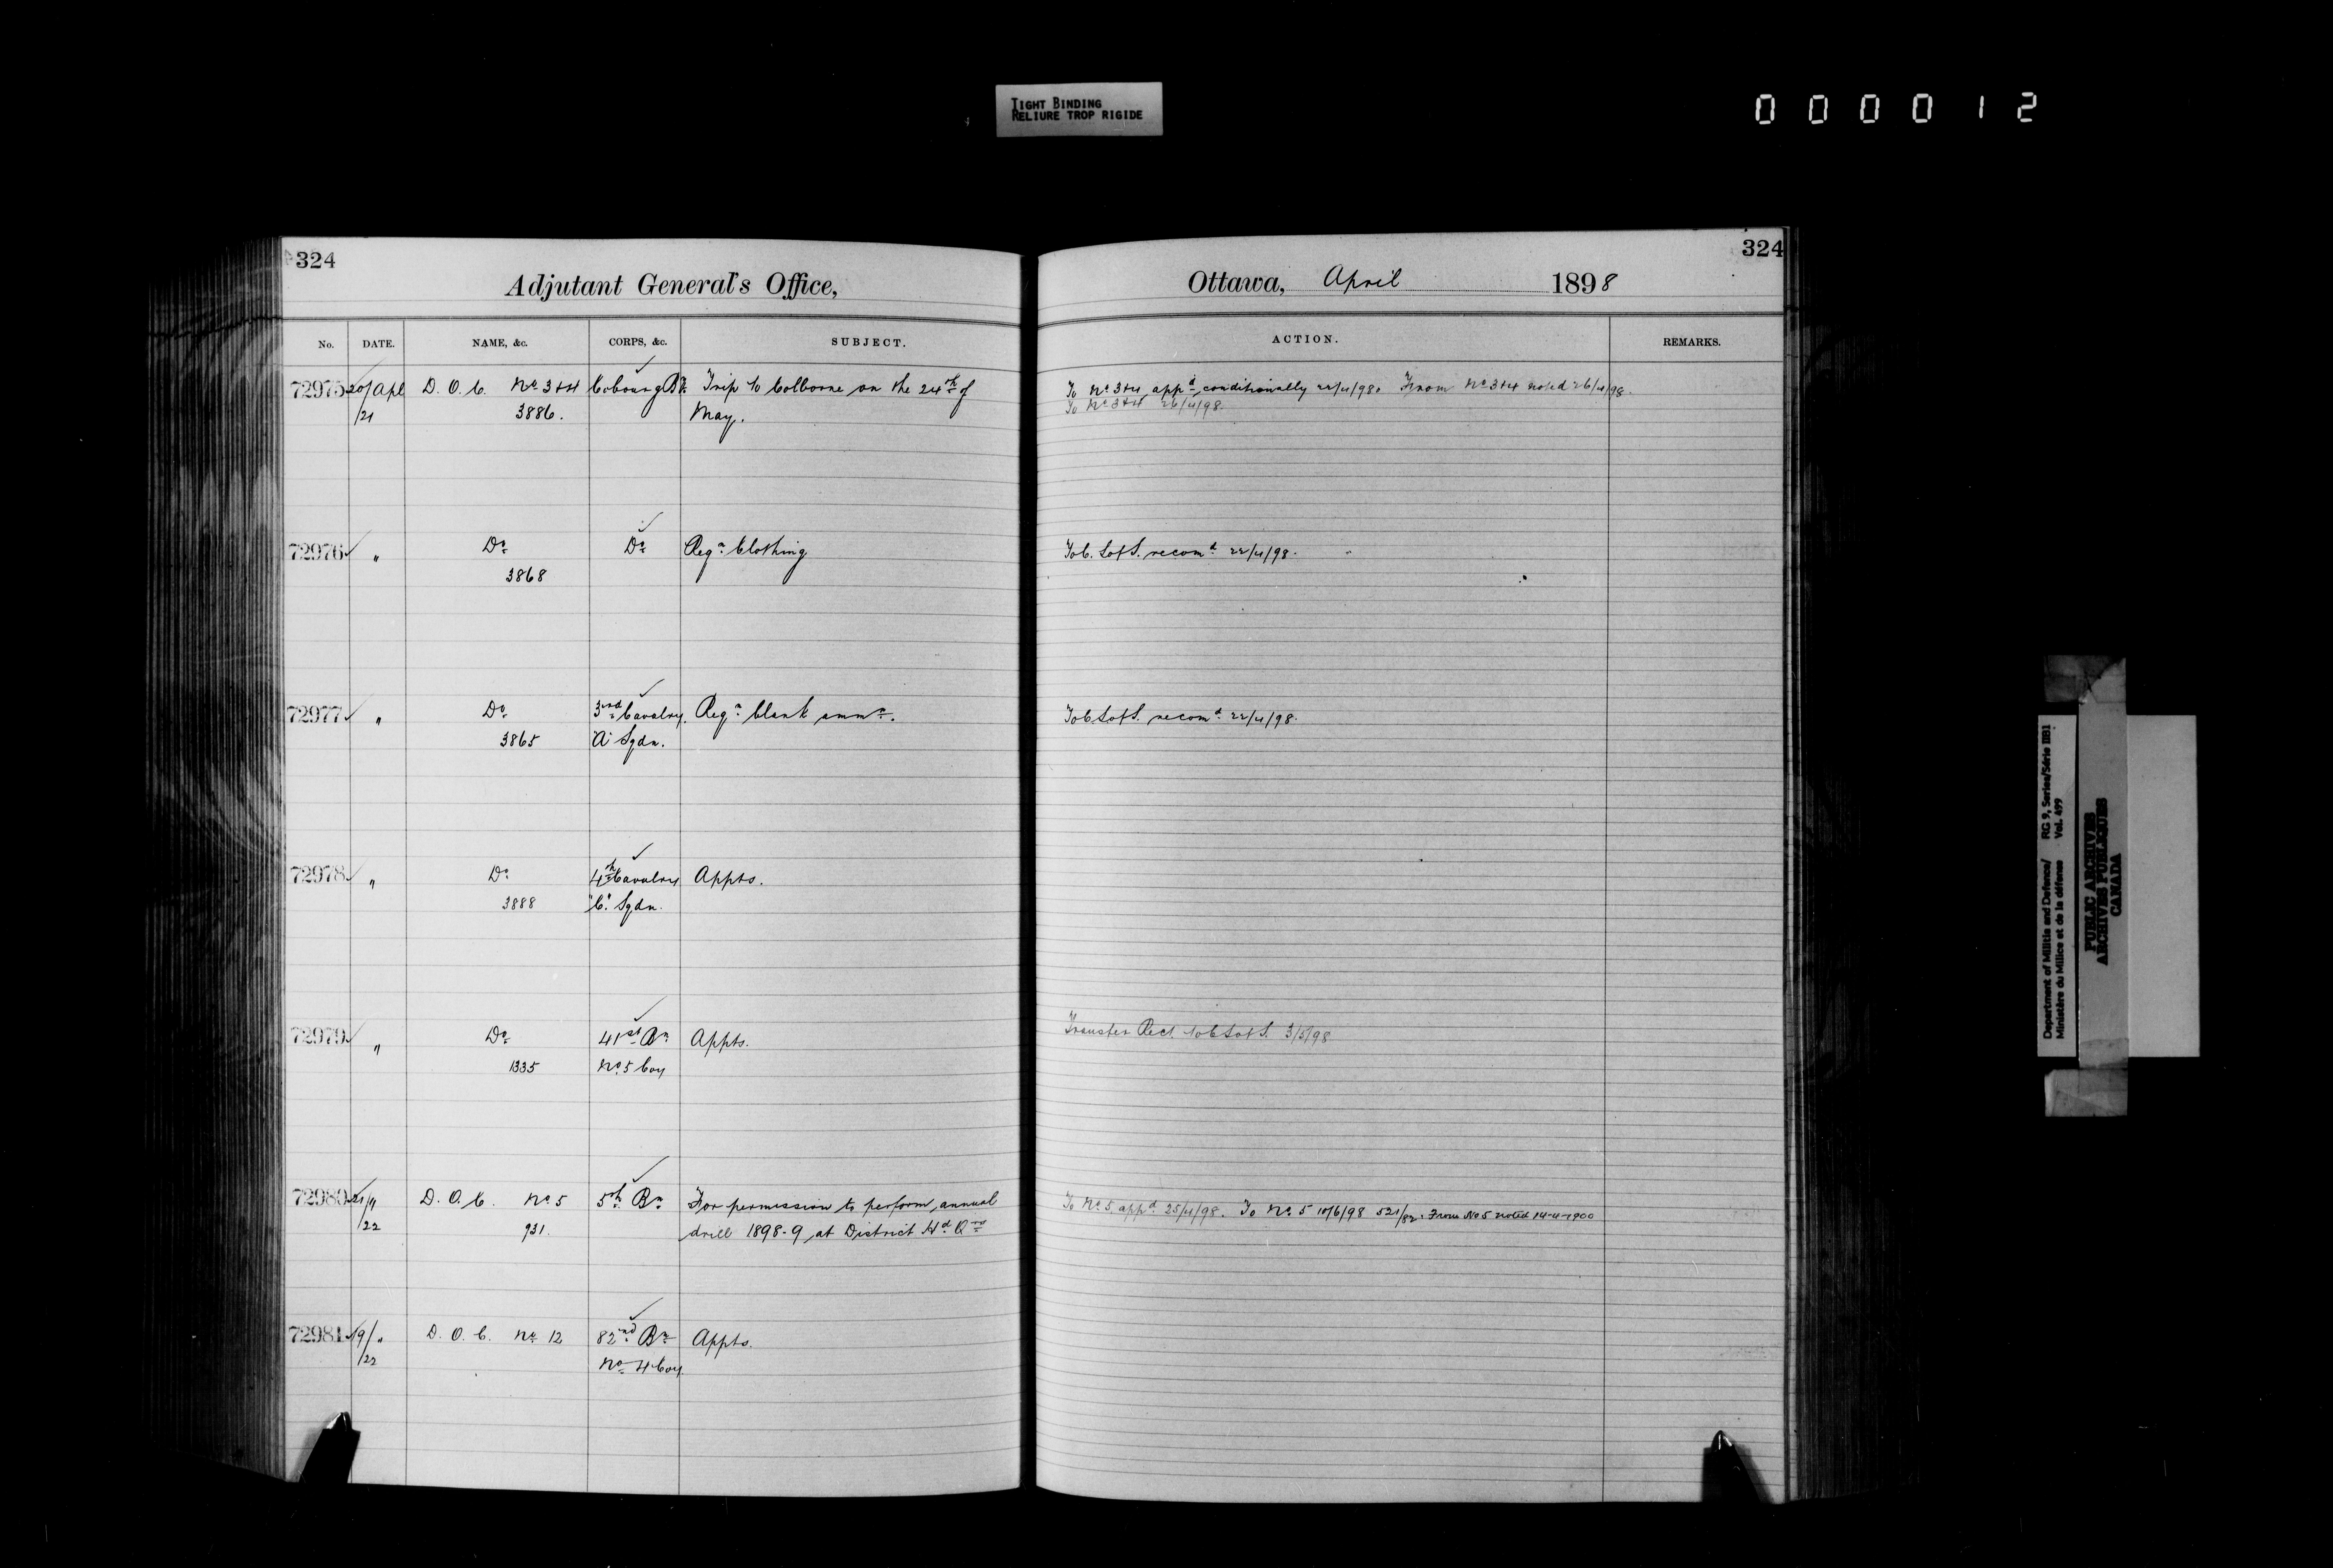 TIGHT BINDING
RELIURE TROP RIGIDE
000012
324
Adjutant General's Office,
No. DATE. NAME, &c. CORPS, &c. SUBJECT.
72975 20/Apl D. O. C. No 3+4 Cobourg Trip to Colborne on the 24th of
/21 3886. May.
72976 " Do Do Reqn Clothing
3868
72977 " Do 3rd Cavalry. Reqn blank ammn.
3865 "A" Sqdn.
72978 " Do 4th Cavalry Appts.
3888 "C" Sqdn.
72979 " Do 41st Bn Appts.
1335 No 5 Coy
72980 21/4 D. O. C. No 5 5th Bn For permission to perform annual
/22 931. drill 1898-9 at District Hd Qrs
72981 19/" D. O. C. No 12 82nd Bn Appts.
/22 No 4 Coy.
324
Ottawa, April 1898
ACTION. REMARKS.
To No 3+4 appd conditionally 22/4/98. From No 3+4 noted 26/4/98.
To No 3+4 26/4/98.
To C. S of S. recomd 22/4/98.
To C S of S. recomd 22/4/98.
Transfer Rect. to C S of S. 3/5/98
To No 5 appd 25/4/98. To No 5 10/6/98 521/82. From No 5 noted 14-4-1900
Department of Militia and Defence/ RG 9, Series/Série IIB1
Ministère du Milice et de la défense Vol. 499
PUBLIC ARCHIVES
ARCHIVES PUBLIQUES
CANADA